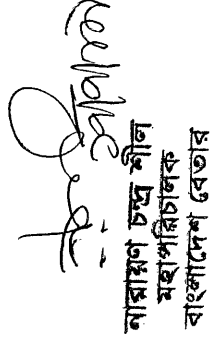 নারায়ণ চন্দ্র শীল
মহাপরিচালক
বাংলাদেশ বেতার